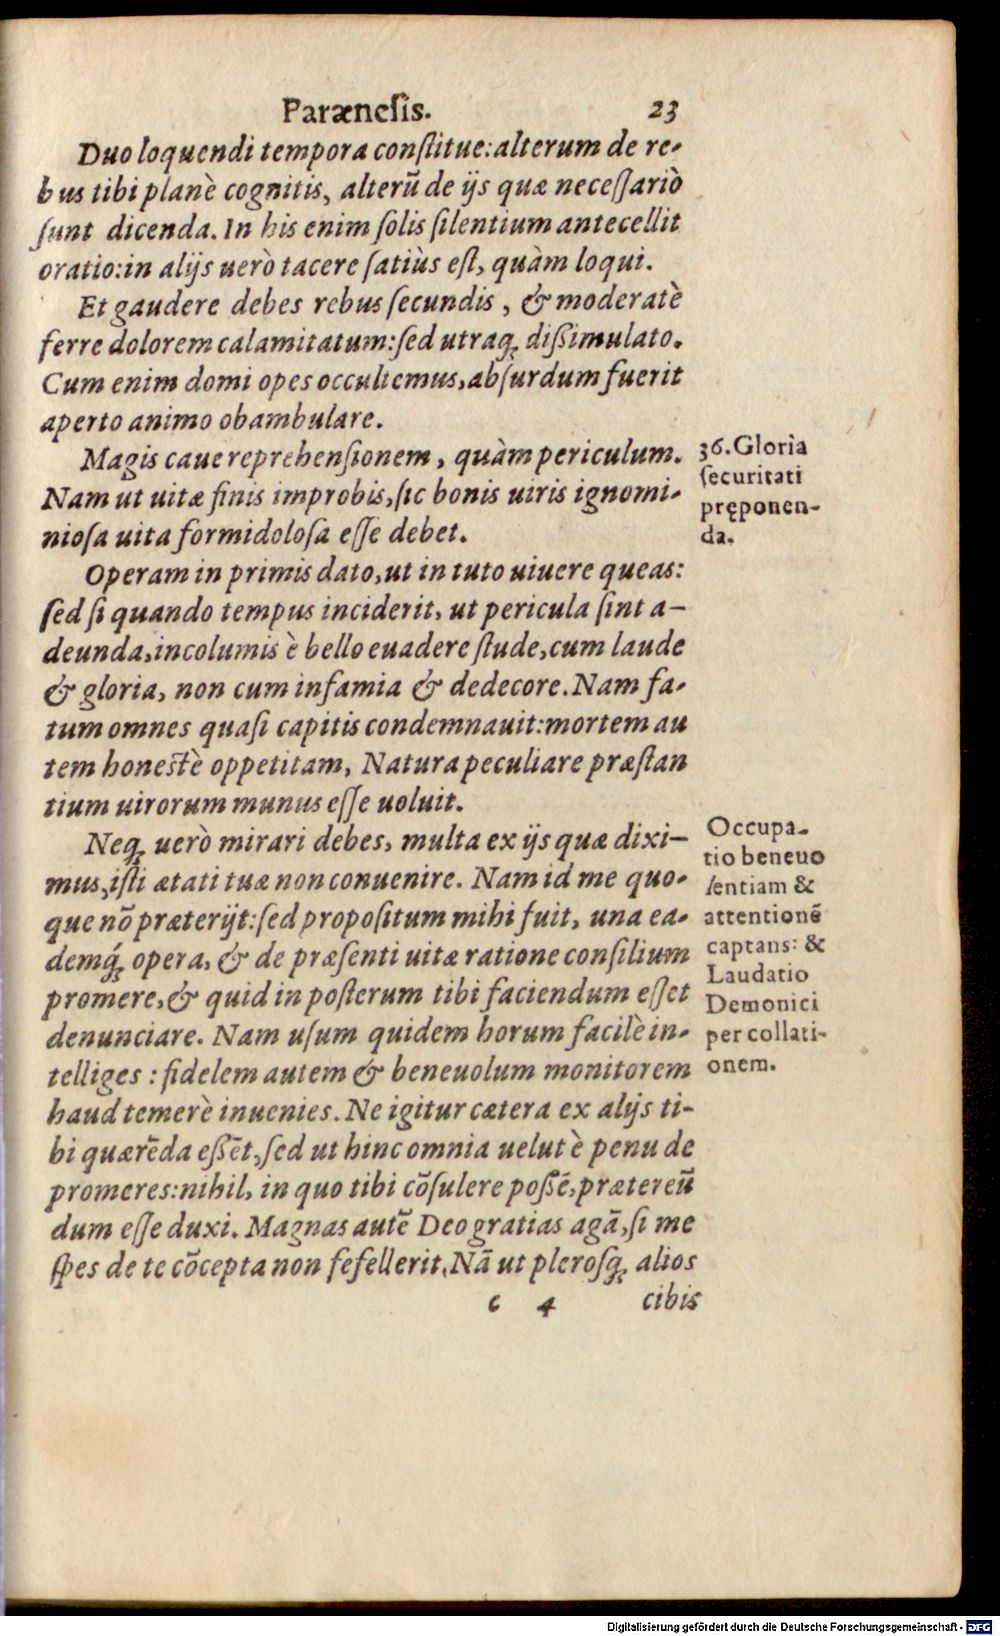 Parænesis.
23
Duo loquendi tempora conſtitue: alterum de re-
bus tibi planè cognitis, alterũ de ijs quæ neceſſariò
ſunt dicenda. In his enim ſolis ſilentium antecellit
oratio: in alijs uerò tacere ſatiùs eſt, quàm loqui.
Et gaudere debes rebus ſecundis, & moderatè
ferre dolorem calamitatum: ſed utraqꝫ dißimulato.
Cum enim domi opes occultemus, abſurdum fuerit
aperto animo obambulare.
Magis caue reprehenſionem, quàm periculum.
Nam ut uitæ finis improbis, ſic bonis uiris ignomi-
nioſa uita formidoloſa eſſe debet.
36. Gloria
ſecuritati
pręponen-
da.
Operam in primis dato, ut in tuto uiuere queas:
ſed ſi quando tempus inciderit, ut pericula ſint a-
deunda, incolumis è bello euadere ſtude, cum laude
& gloria, non cum infamia & dedecore. Nam fa-
tum omnes quaſi capitis condemnauit: mortem au
tem honestè oppetitam, Natura peculiare præſtan
tium uirorum munus eſſe uoluit.
Neqꝫ uerò mirari debes, multa ex ijs quæ dixi-
mus, iſti ætati tuæ non conuenire. Nam id me quo-
que nõ præterijt: ſed propoſitum mihi fuit, una ea-
demq́ꝫ opera, & de præſenti uitæ ratione conſilium
promere, & quid in poſterum tibi faciendum eſſet
denunciare. Nam uſum quidem horum facilè in-
telliges: fidelem autem & beneuolum monitorem
haud temerè inuenies. Ne igitur cætera ex alijs ti-
bi quærẽda eßẽt, ſed ut hinc omnia uelut è penu de
promeres: nihil, in quo tibi cõſulere poßẽ, prætereũ
dum eſſe duxi. Magnas autẽ Deo gratias agã, ſi me
ſpes de te cõcepta non fefellerit. Nã ut pleroſqꝫ alios
Occupa-
tio beneuo
lentiam &
attentionẽ
captans: &
Laudatio
Demonici
per collati-
onem.
c 4
cibis
Digitalisierung gefördert durch die Deutsche Forschungsgemeinschaft - DFG